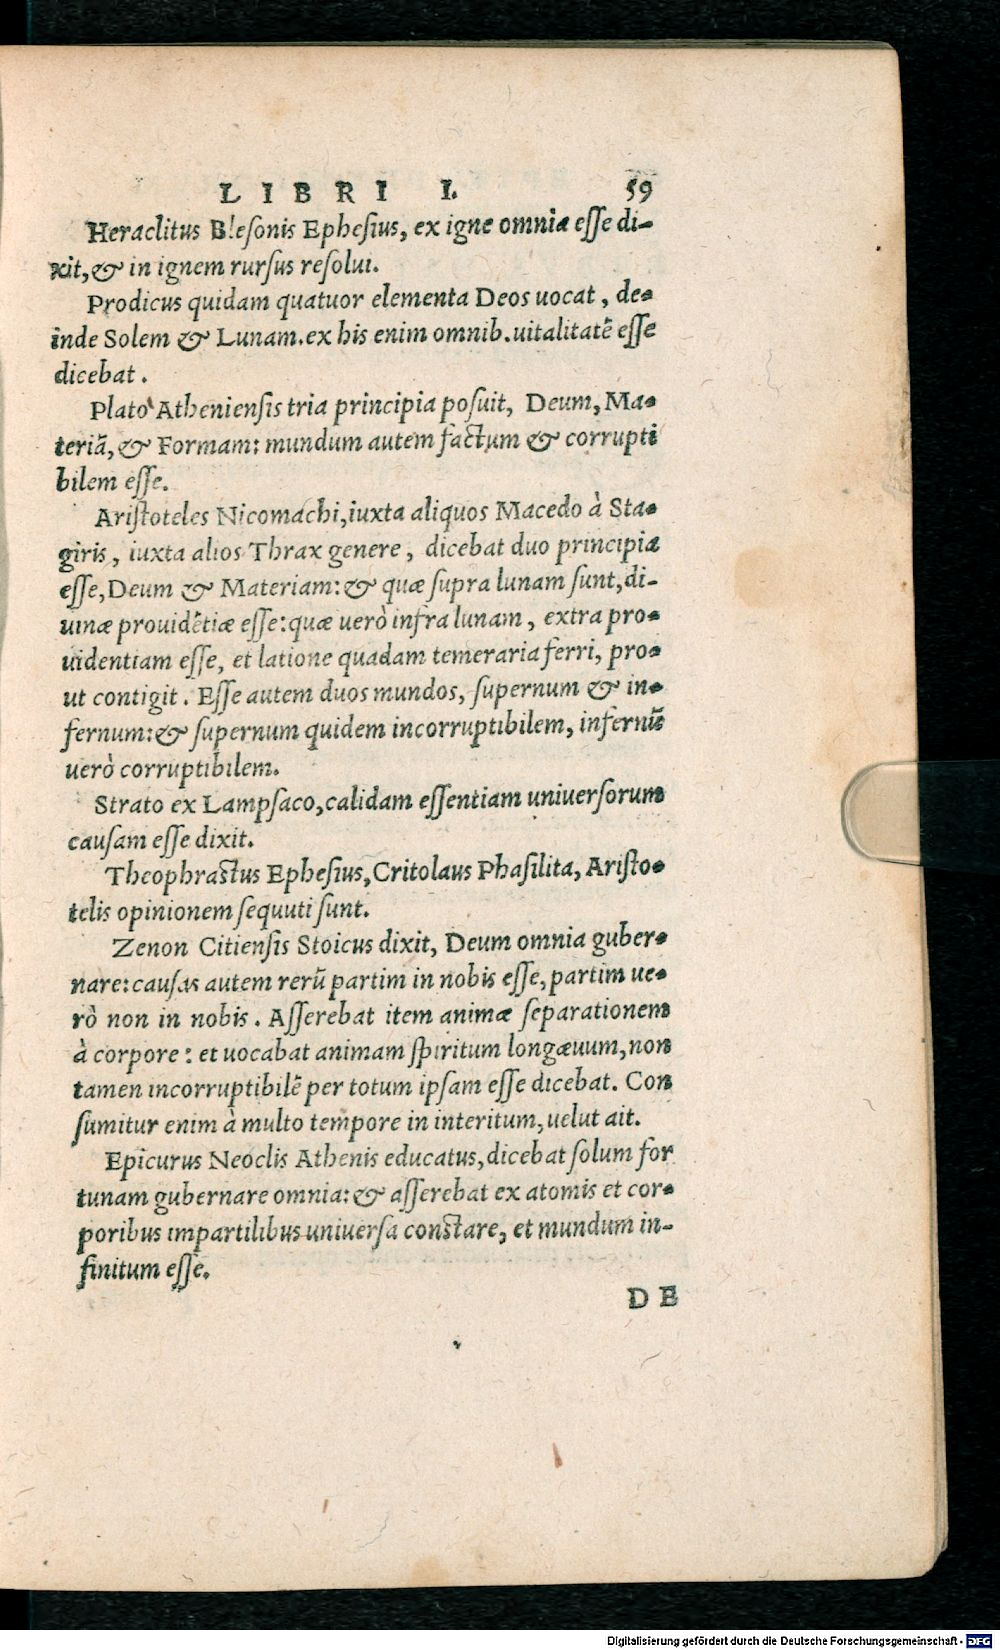 LIBRI I. 59
Heraclitus Blesonis Ephesius, ex igne omnia esse di-
xit, & in ignem rursus resolui.
Prodicus quidam quatuor elementa Deos uocat, de-
inde Solem & Lunam. ex his enim omnib. uitalitatē esse
dicebat.
Plato Atheniensis tria principia posuit, Deum, Ma-
teriã, & Formam: mundum autem factum & corrupti
bilem esse.
Aristoteles Nicomachi, iuxta aliquos Macedo à Sta-
giris, iuxta alios Thrax genere, dicebat duo principia
esse, Deum & Materiam: & quæ supra lunam sunt, di-
uinæ prouidētiæ esse: quæ uerò infra lunam, extra pro-
uidentiam esse, et latione quadam temeraria ferri, pro-
ut contigit. Esse autem duos mundos, supernum & in-
fernum: & supernum quidem incorruptibilem, infernũ
uerò corruptibilem.
Strato ex Lampsaco, calidam essentiam uniuersorum
causam esse dixit.
Theophrastus Ephesius, Critolaus Phasilita, Aristo-
telis opinionem sequuti sunt.
Zenon Citiensis Stoicus dixit, Deum omnia guber-
nare: causas autem rerũ partim in nobis esse, partim ue-
rò non in nobis. Asserebat item animæ separationem
à corpore: et uocabat animam spiritum longæuum, non
tamen incorruptibilē per totum ipsam esse dicebat. Con
sumitur enim à multo tempore in interitum, uelut ait.
Epicurus Neoclis Athenis educatus, dicebat solum for
tunam gubernare omnia: & asserebat ex atomis et cor-
poribus impartilibus uniuersa constare, et mundum in-
finitum esse.
DE
Digitalisierung gefördert durch die Deutsche Forschungsgemeinschaft - DFG